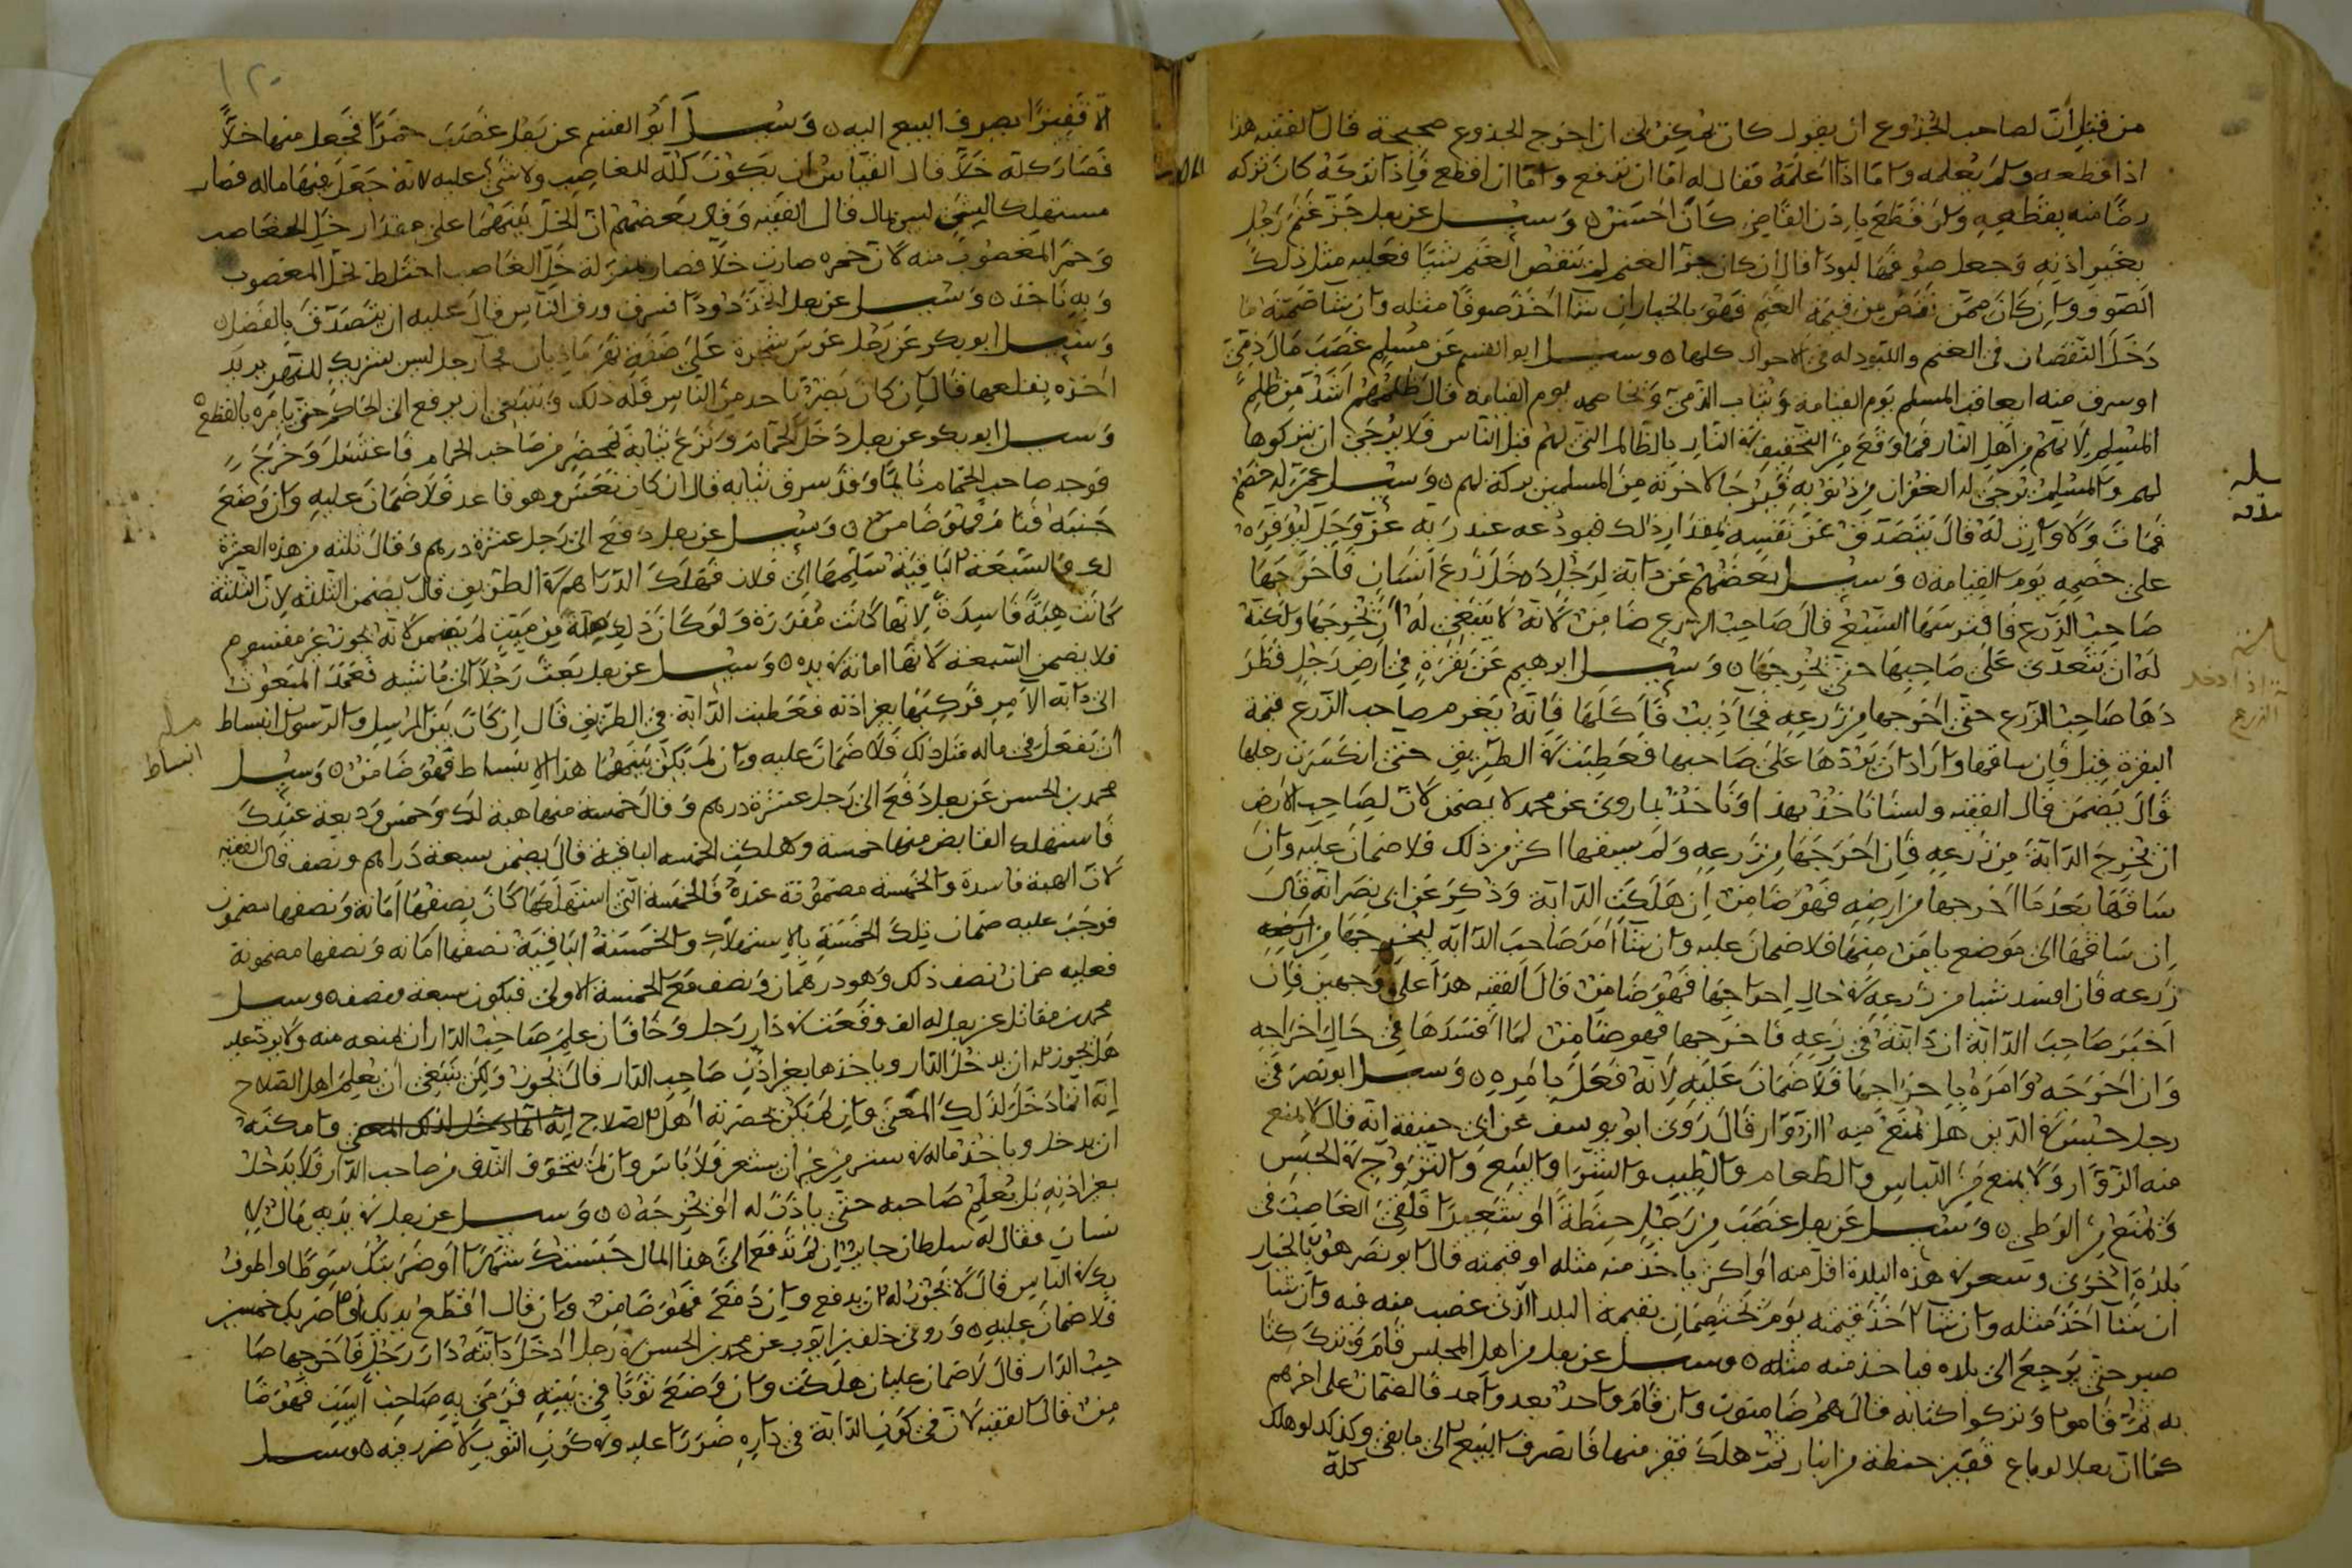 من قبل أن لصاحب الجذوع ان يقول كان يمكن لى ان اخرج الجذوع صحيحة قال الفقيه هذا
اذا قطعه ولم يعلمه واما اذا اعلمه فقال له اما ان ترفع واما ان اقطع فاذا تركه كان تركه
رضا منه بقطعه ولو قطع باذن القاضى كان احسن وسئل عن رجل جز غنم رجل
بغير اذنه وجعل صوفها لبودا قال ان كان جز الغنم لم ينقص الغنم شيئا فعليه مثل ذلك
الصوف وان كان ممن نقص من قيمة الغنم فهو بالخيار ان شا اخذ صوفا مثله وان شا ضمنه ما
دخل النقصان فى الغنم واللبود له فى الاحوال كلها وسئل ابو القسم عن مسلم غصب مال ذمى
او سرق منه ايعاقب المسلم يوم القيامة ويثاب الذمى ويخاصمه يوم القيامة قال ظلمهم اشد من ظلم
المسلم لانهم من اهل النار فما وقع من التخفيف فى النار بالظالم التى لهم قبل الناس فلا يرجى ان يتركوها
لهم والمسلم يرجى له الغفران من ذنوبه فيرجا لاخوته من المسلمين بركة لهم وسئل عمن له خصم
فمات ولا وارث له قال يتصدق عن نفسه بمقدار ذلك فيودعه عند ربه عز وجل ليوفره
على خصمه يوم القيامة وسئل بعضهم عن دابة لرجل دخل زرع انسان فاخرجها
صاحب الزرع فافترسها السبع قال صاحب الزرع ضامن لانه لا ينبغى له ان يخرجها ولكنه
له ان يتعدى على صاحبها حتى يخرجها وسئل ابرهيم عن بقرة فى ارض رجل فطر
دها صاحب الزرع حتى اخرجها من زرعه فجا ذيب فاكلها قال انه يغرم صاحب الزرع قيمة
البقرة قيل فان ساقها واراد ان يردها على صاحبها فعطبت فى الطريق حتى انكسرت رجلها
قال يضمن قال الفقيه ولسنا ناخذ بهذا وناخذ بما روى عن محمد لا يضمن لان لصاحب الارض
ان يخرج الدابة من زرعه فان اخرجها من زرعه ولم يسقها اكثر من ذلك فلا ضمان عليه وان
ساقها بعد ما اخرجها من ارضه فهو ضامن ان هلكت الدابة وذكر عن ابى نصر انه قال
ان ساقها الى موضع يامن منها فلا ضمان عليه وان شا امر صاحب الدابة ليخرجها من ارضه
زرعه فان افسد شيا من زرعه فى حال اخراجها فهو ضامن قال الفقيه هذا على وجهين فان
اخبر صاحب الدابة ان دابته فى زرعه فاخرجها فهو ضامن لما افسدها فى حال اخراجه
وان اخرجه وامره باخراجها فلا ضمان عليه لانه فعل بامره وسئل ابو نصر فى
رجل حبس فى الدين هل يمنع منه الزوار قال روى ابو يوسف عن ابى حنيفة انه قال لا يمنع
منه الزوار ولا يمنع من اللباس والطعام والطيب والشرا والبيع والتزويج فى الحبس
ويمنع من الوطى وسئل عن رجل غصب من رجل حنطة او شعيرا فلقى الغاصب فى
بلدة اخرى وسعره فى هذه البلدة اقل منه او اكثر ياخذ منه مثله او قيمته قال ابو نصر هو بالخيار
ان شا اخذ مثله وان شا اخذ قيمته يوم يختصمان بقيمة البلد الذى غصب منه فيه وان شا
صبر حتى يرجع الى بلده فياخذ منه مثله وسئل عن رجل من اهل المجلس قام وترك كتا
به ثم قاموا وتركوا كتابه قال هم ضامنون وان قام واحد بعد واحد فالضمان على اخرهم
كما ان رجلا لو باع قفيز حنطة من انبار ثم هلك قفيز منها فانصرف البيع الى ما بقى وكذلك لو هلك
كله
سله
انه اذا دخل
الزرع
١٢٠
الا قفيزا يصرف البيع اليه وسئل ابو القسم عن رجل غصب خمرا فجعل منها خلا
فصار كله خلا قال القياس ان يكون كله للغاصب ولا شى عليه لانه جعل فيها ماله فصار
مستهلكا لشى ليس بمال قال الفقيه وقال بعضهم ان الخل بينهما على مقدار خل الغاصب
وخمر المغصوب منه لان خمره صارت خلا فصار بمنزلة خل الغاصب اختلط بخل المغصوب
وبه ناخذ وسئل عن رجل اخذ دودا فسرق ورق الناس قال عليه ان يتصدق بالفضل
وسئل ابو بكر عن رجل غرس شجرة على ضفة نهر ماذيان فجا رجل ليس بشريك للنهر يريد
اخذه بقلعها قال ان كان يضر باحد من الناس فله ذلك وينبغى ان يرفع الى الحاكم حتى يامره بالقطع
وسئل ابو بكر عن رجل دخل الحمام ونزع ثيابه بمحضر من صاحب الحمام فاغتسل وخرج
فوجد صاحب الحمام نايما وقد سرق ثيابه قال ان كان نعس وهو قاعد فلا ضمان عليه وان وضع
جنبه فنام فهو ضامن وسئل عن رجل دفع الى رجل عشرة درهم وقال ثلثه من هذه العشرة
لك والسبعة الباقية سلمها الى فلان فهلك الدراهم فى الطريق قال يضمن الثلثه لان الثلثة
كانت هبة فاسدة لانها كانت مقدرة ولو كان ذلك وصية من ميت لم يضمن لانه يجوز غير مقسوم
فلا يضمن السبعة لانها امانة فى يده وسئل عن رجل بعث رجلا الى ماشيه فعمد المبعوث
الى دابة الامر فركبها بغير اذنه فعطبت الدابة فى الطريق قال ان كان بين المرسل والرسول انبساط
ان يفعل فى ماله مثل ذلك فلا ضمان عليه وان لم يكن بينهما هذا الانبساط فهو ضامن وسئل
محمد بن الحسن عن رجل دفع الى رجل عشرة درهم وقال خمسة منها هبة لك وخمس وديعة عندك
فاستهلك القابض منها خمسة وهلكت الخمسه الباقية قال يضمن سبعة دراهم ونصف قال الفقيه
لان الهبة فاسدة والخمسة مضمونة عنده فالخمسة التى استهلكها كان نصفها امانة ونصفها مضمون
فوجب عليه ضمان تلك الخمسة بالاستهلاك والخمسة الباقية نصفها امانه ونصفها مضمونة
فعليه ضمان نصف ذلك وهو درهمان ونصف مع الخمسة الاولى فيكون سبعة ونصف وسئل
محمد بن مقاتل عن رجل له الف وقعت فى دار رجل وخاف ان علم صاحب الدار ان يمنعه منه ولا يرد عليه
هل يجوز له ان يدخل الدار وياخذها بغير اذن صاحب الدار قال يجوز ولكن ينبغى ان يعلم اهل الصلاح
انه انما دخل لذلك المعنى وان لم يكن بحضرته اهل الصلاح انه انما دخل لذلك المعنى وامكنه
ان يدخل وياخذ ماله فى ستر من غير ان يشعر فلا باس وان لم يتخوف التلف من صاحب الدار فلا يدخل
بغير اذنه بل يعلم صاحبه حتى ياذن له او يخرجه وسئل عن رجل فى يديه مال لا
نسان فقال له سلطان جاير ان لم تدفع الى هذا المال حبستك شهرا او ضربتك سوطا او اطوف
بك فى الناس قال لا يجوز له ان يدفع وان دفع فهو ضامن وان قال اقطع يدك او اضربك خمسين
فلا ضمان عليه وروى خلف بن ايوب عن محمد بن الحسن فى رجل ادخل دابته دار رجل فاخرجها صا
حب الدار قال لا ضمان عليه ان هلكت وان وضع ثوبا فى بيته فرمى به صاحب البيت فهو ضا
من قال الفقيه لان فى كون الدابة فى داره ضررا عليه وفى كون الثوب لا ضرر فيه وسئل
انبساط